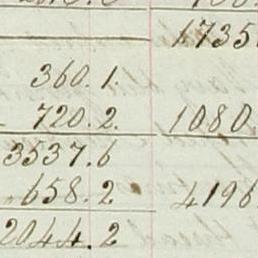 1735
360.1.
720.2. 1080
3537.6
658.2 4196
2044.2